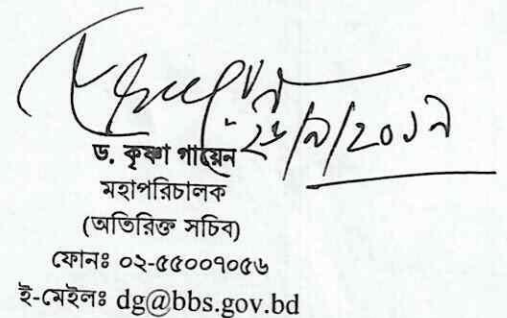 ২৬/৯/২০১৭
ড. কৃষ্ণা গায়েন
মহাপরিচালক
(অতিরিক্ত সচিব)
ফোনঃ ০২-৫৫০০৭০৫৬
ই-মেইলঃ dg@bbs.gov.bd